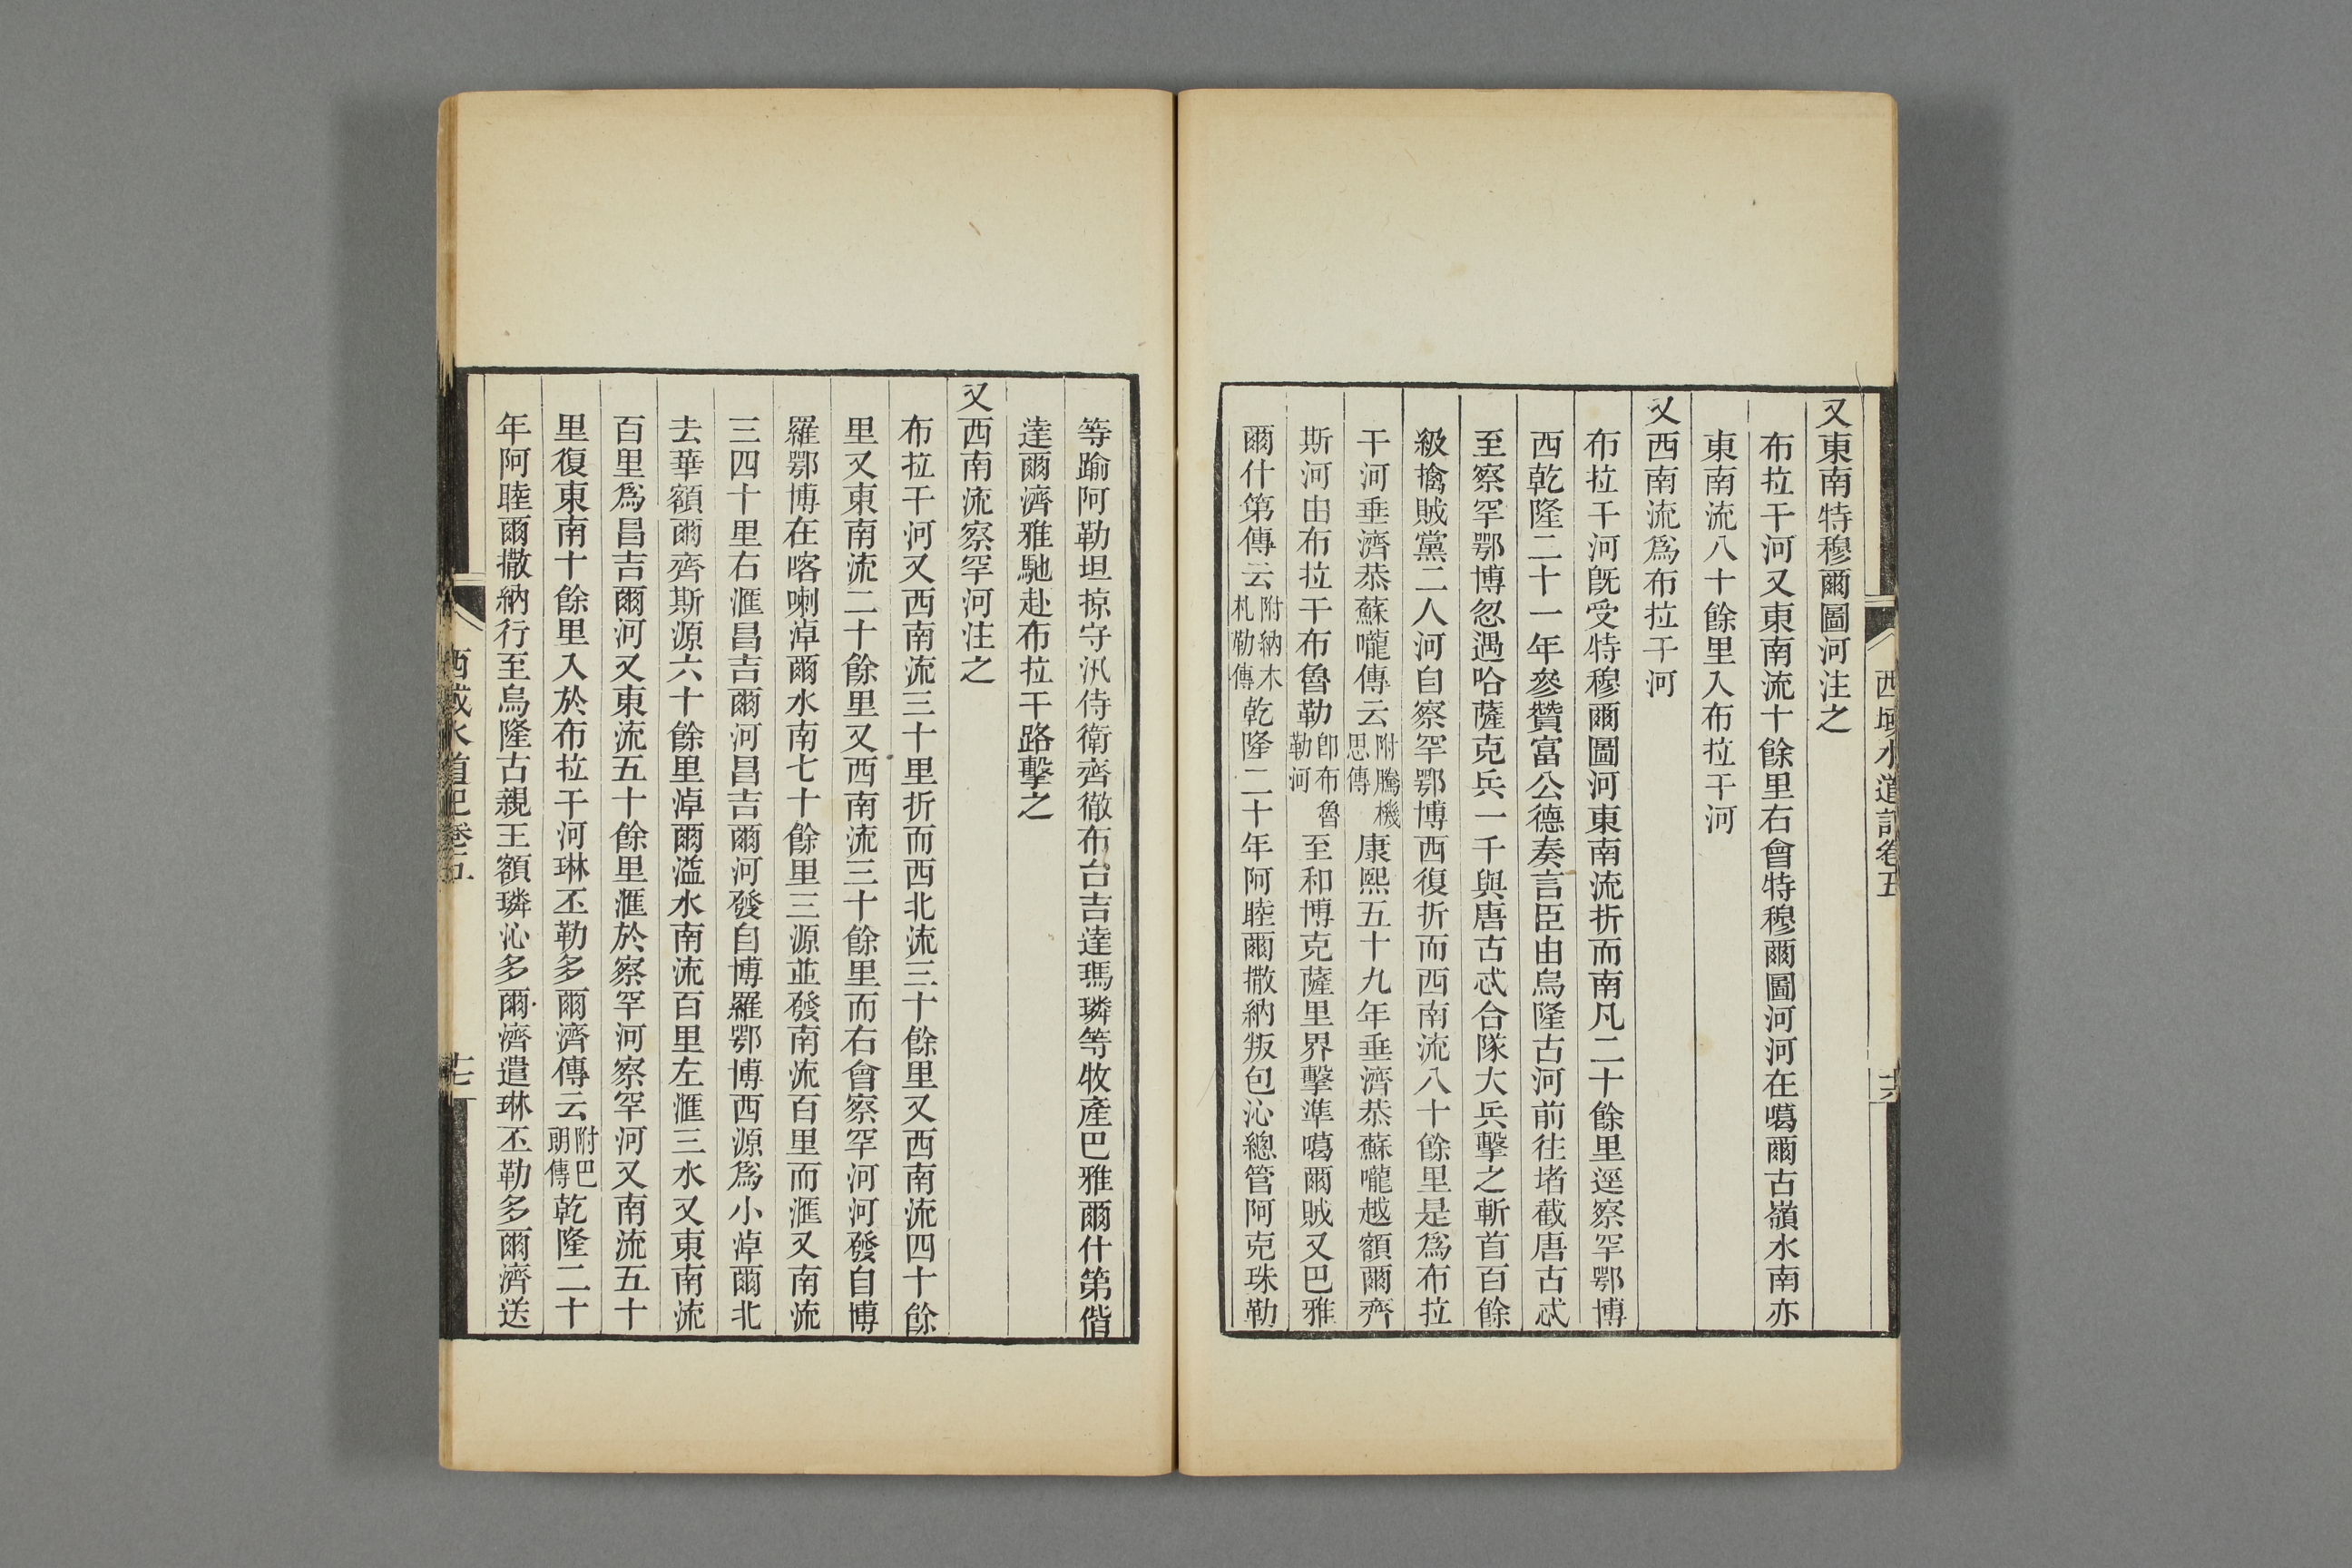 西域水道記卷五
又東南特穆爾圖河注之
布拉干河又東南流十餘里右會特穆爾圖河河在噶爾古嶺水南亦
東南流八十餘里入布拉干河
又西南流爲布拉干河
布拉干河旣受特穆爾圖河東南流折而南凡二十餘里逕察罕鄂博
西乾隆二十一年參贊富公德奏言臣由烏隆古河前往堵截唐古忒
至察罕鄂博忽遇哈薩克兵一千與唐古忒合隊大兵擊之斬首百餘
級擒賊黨二人河自察罕鄂博西復折而西南流八十餘里是爲布拉
干河垂濟恭蘇嚨傳云附騰機思傳康熙五十九年垂濟恭蘇嚨越額爾齊
斯河由布拉干布魯勒卽布魯勒河至和博克薩里界擊準噶爾賊又巴雅
爾什第傳云附納木札勒傳乾隆二十年阿睦爾撒納叛包沁總管阿克珠勒
等踰阿勒坦掠守汛侍衛齊徹布台吉達瑪璘等牧產巴雅爾什第偕
達爾濟雅馳赴布拉干路擊之
又西南流察罕河注之
布拉干河又西南流三十里折而西北流三十餘里又西南流四十餘
里又東南流二十餘里又西南流三十餘里而右會察罕河河發自博
羅鄂博在喀喇淖爾水南七十餘里三源並發南流百里而滙又南流
三四十里右滙昌吉爾河昌吉爾河發自博羅鄂博西源爲小淖爾北
去華額爾齊斯源六十餘里淖爾溢水南流百里左滙三水又東南流
百里爲昌吉爾河又東流五十餘里滙於察罕河察罕河又南流五十
里復東南十餘里入於布拉干河琳丕勒多爾濟傳云附巴朗傳乾隆二十
年阿睦爾撒納行至烏隆古親王額璘沁多爾濟遣琳丕勒多爾濟送
西域水道記卷五